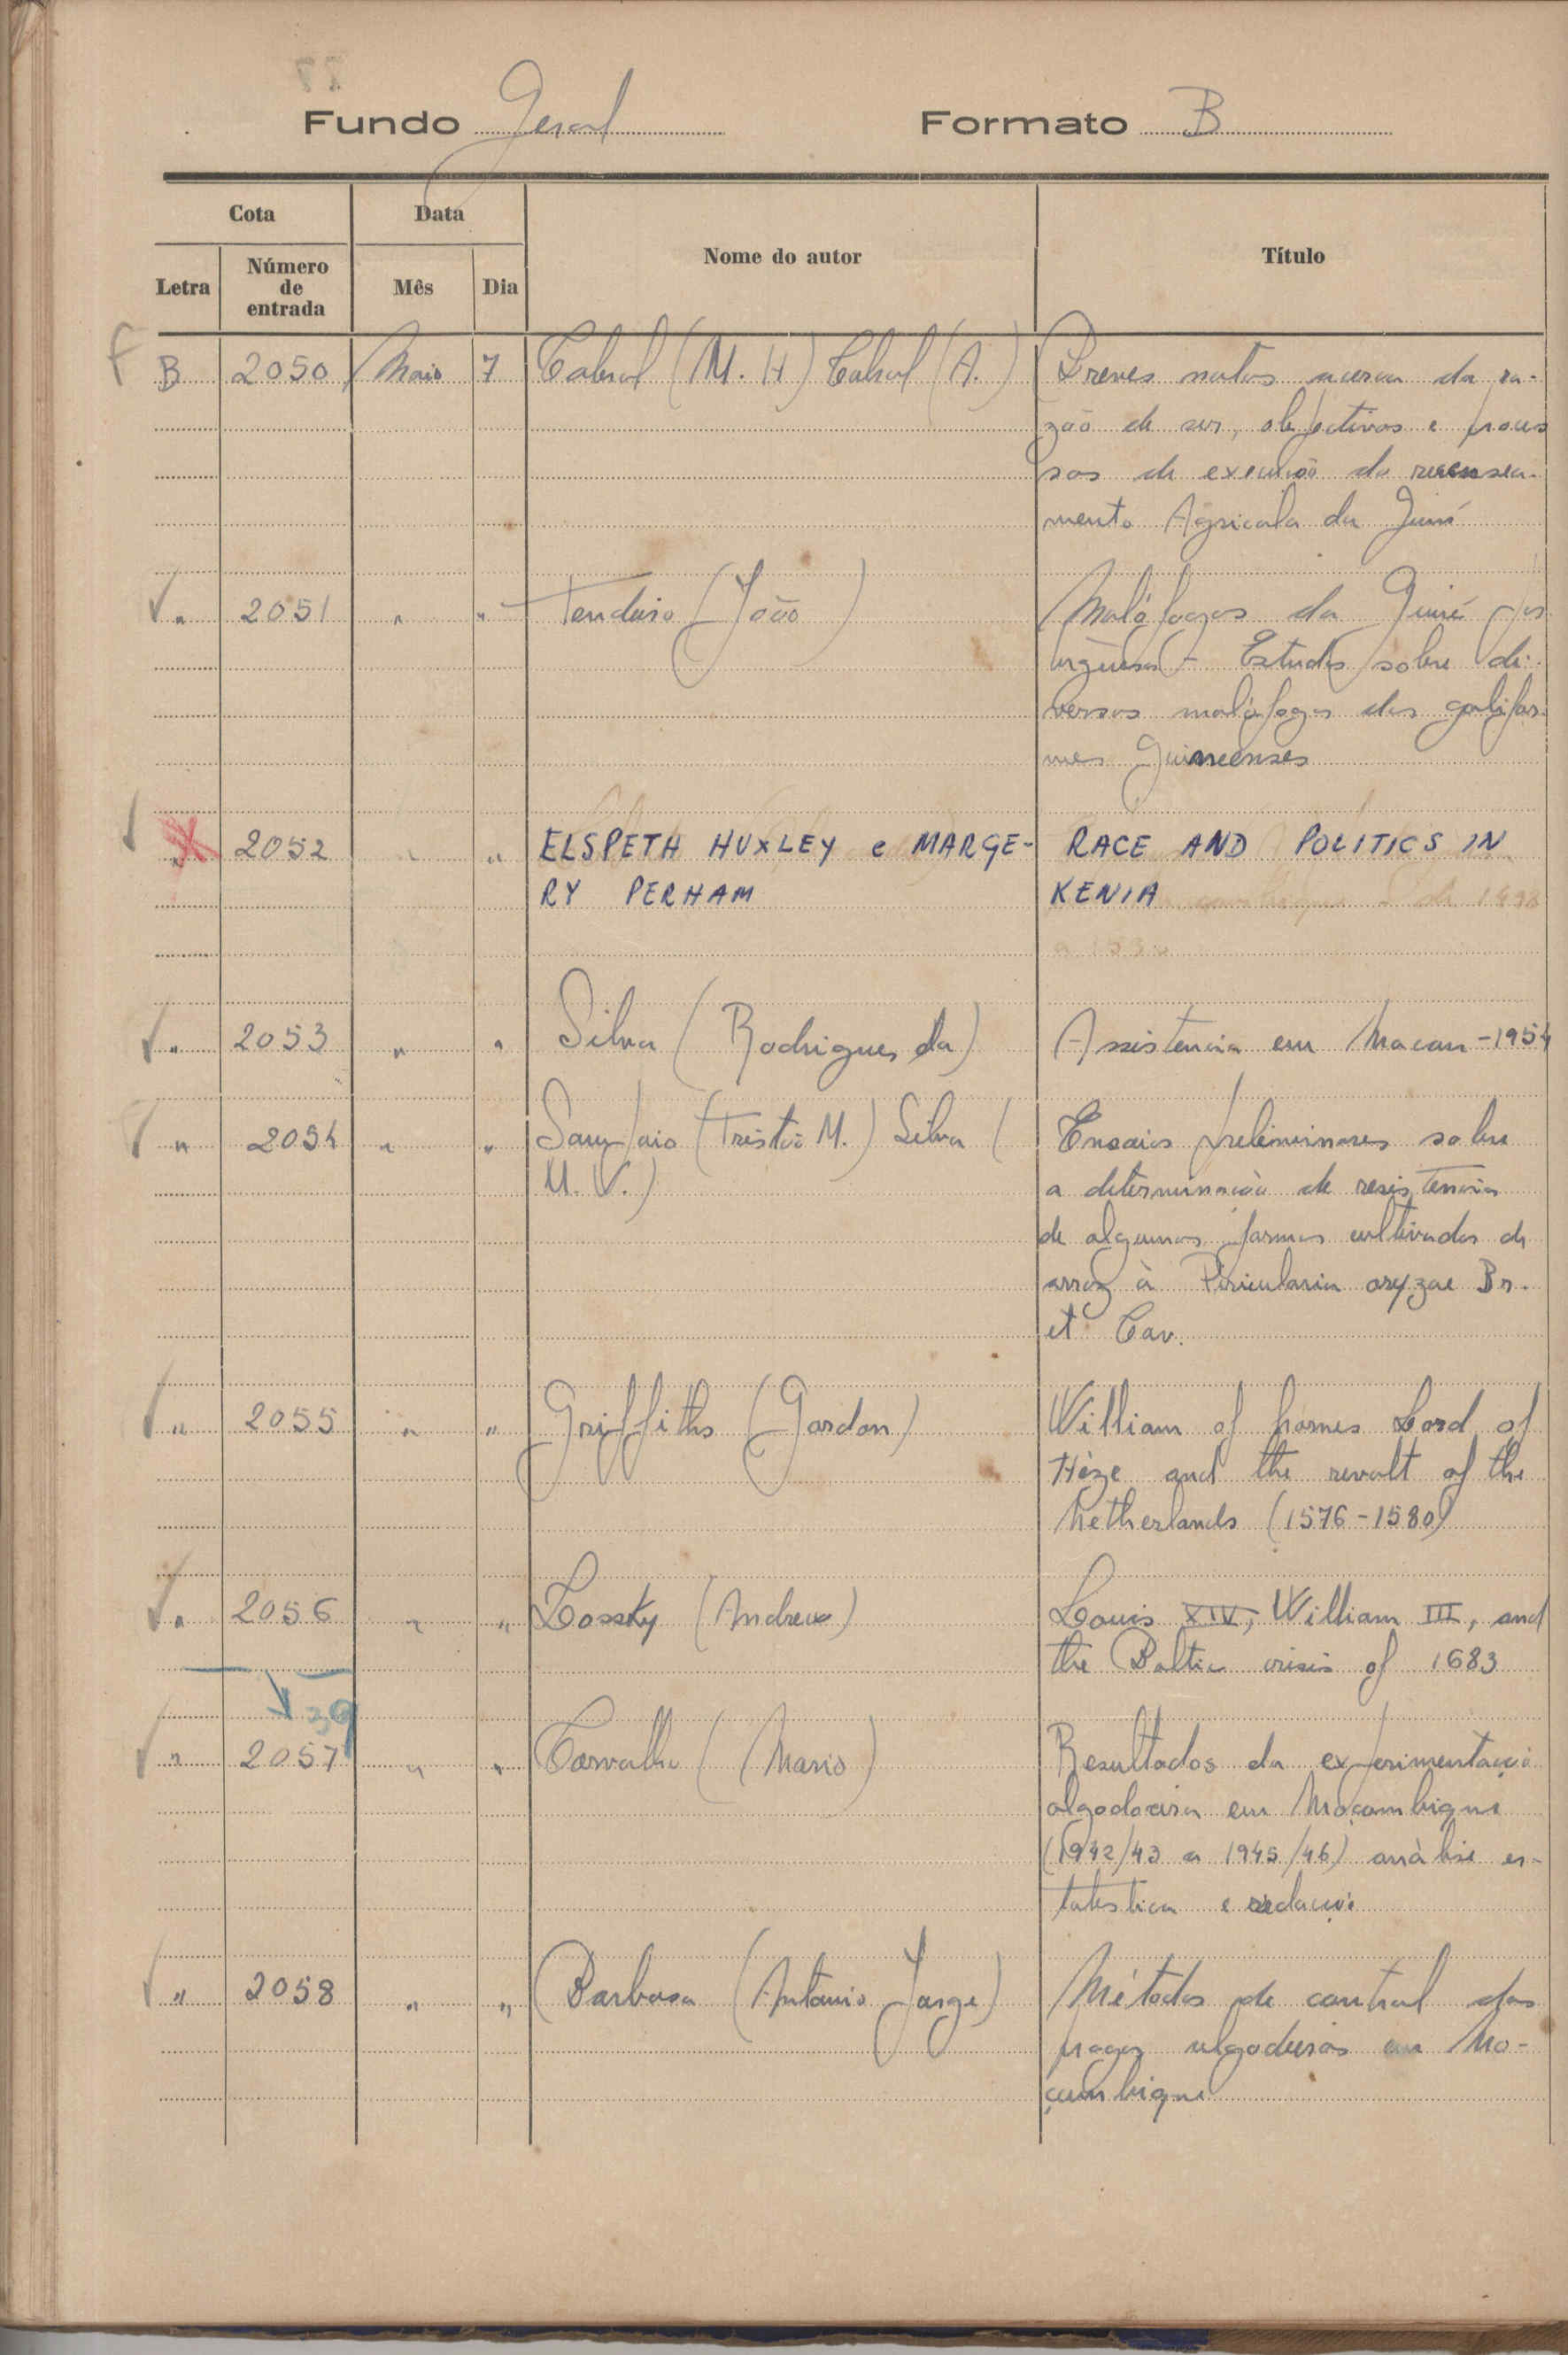 Fundo Geral Formato B
Cota Data Nome do autor Título
Letra Número de entrada Mês Dia
F B 2050 Maio 7 Cabral (M. H) Cabral (A.) Breves notas acerca da ra-
zão de ser, objectivos e proces
sos de execução do recensea-
mento Agricola da Guiné
" 2051 " " Tendeiro (João) Malófagos da Guiné por
tuguesa - Estudos sobre di-
versos malófagos dos galifor-
mes guineenses
" 2052 " " ELSPETH HUXLEY e MARGE- RACE AND POLITICS IN
RY PERHAM KENIA
" 2053 " " Silva (Rodrigues da) Assistencia em Macau - 1954
" 2054 " " Sampaio (Tristão M.) Silva ( Ensaios preliminares sobre
M. V.) a determinação de resistencia
de algumas formas cultivadas de
arroz à Piricularia oryzae Br.
et Cav.
" 2055 " " Griffiths (Gordon) William of hornes Lord of
Hèze and the revolt of the
Netherlands (1576-1580)
" 2056 " " Lossky (Andrew) Louis XIV, William III, and
the Baltic crisis of 1683
39
" 2057 " " Carvalho (Mario) Resultados da experimentação
algodoeira em Moçambique
(1942/43 a 1945/46) análise es-
tatistica e redacção
" 2058 " " Barbosa (Antonio Jorge) Métodos de control das
pragas algodeiras em Mo-
çambique